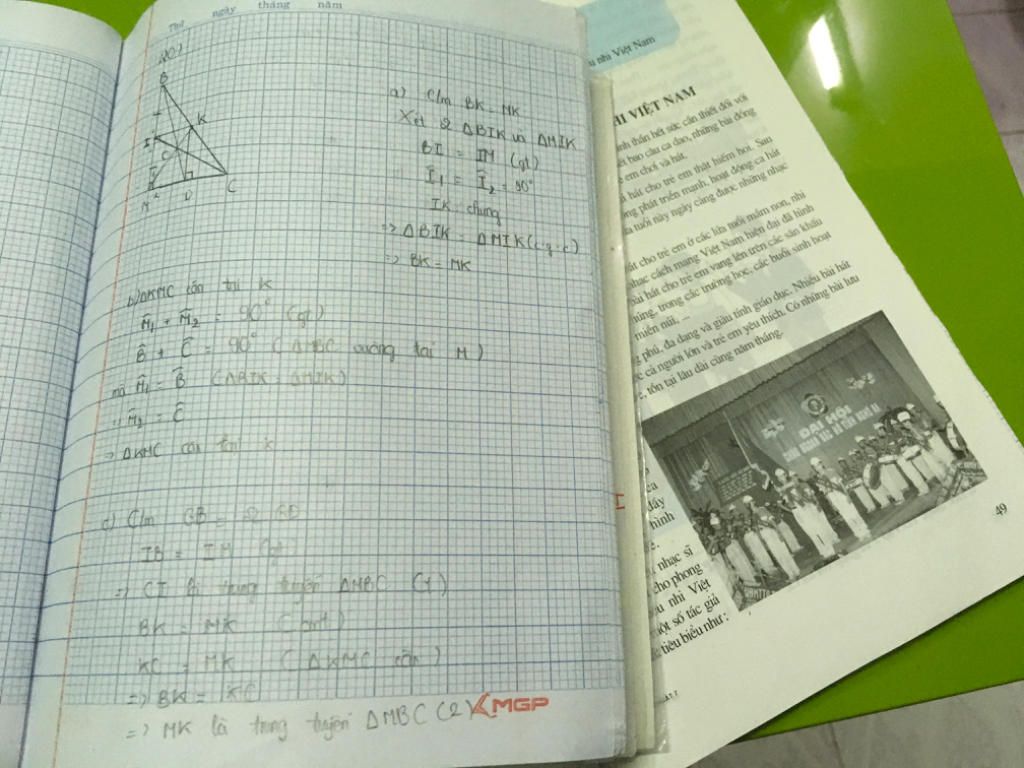 Thứ ngày tháng năm
B
K
I
G
D
C
a) C/m BK = MK
Xét 2 ΔBIK và ΔMIK
BI = IM (gt)
Î₁ = Î₂ = 90°
IK chung
=> ΔBIK = ΔMIK (c.g.c)
=> BK = MK
b) ΔKMC cân tại K
M̂₁ + M̂₂ = 90° (gt)
B̂ + Ĉ = 90° (ΔMBC vuông tại M)
mà M̂₁ = B̂ (ΔBIK = ΔMIK)
=> M̂₂ = Ĉ
=> ΔKMC cân tại K
c) C/m GB = 2 GD
IB = IM (gt)
=> CI là trung tuyến ΔMBC (1)
BK = MK (cmt)
KC = MK (ΔKMC cân)
=> BK = KC
=> MK là trung tuyến ΔMBC (2)
MGP
u nhi Việt Nam
HI VIỆT NAM
inh thần hết sức cần thiết đối với
ết bao câu ca dao, những bài đồng
ẻ em chơi và hát.
hát cho trẻ em thật hiếm hoi. Sau
ng phát triển mạnh, hoạt động ca hát
a tuổi này ngày càng được những nhạc
át cho trẻ em ở các lứa tuổi mầm non, nhi
nhạc cách mạng Việt Nam hiện đại đã hình
bài hát cho trẻ em vang lên trên các sân khấu
húng, trong các trường học, các buổi sinh hoạt
miền núi, ...
g phú, đa dạng và giàu tính giáo dục. Nhiều bài hát
c cả người lớn và trẻ em yêu thích. Có những bài lưu
, tồn tại lâu dài cùng năm tháng.
ĐẠI HỘI
49
đây
hình
, nhạc sĩ
cho phong
u nhi Việt
ột số tác giả
tiêu biểu như :